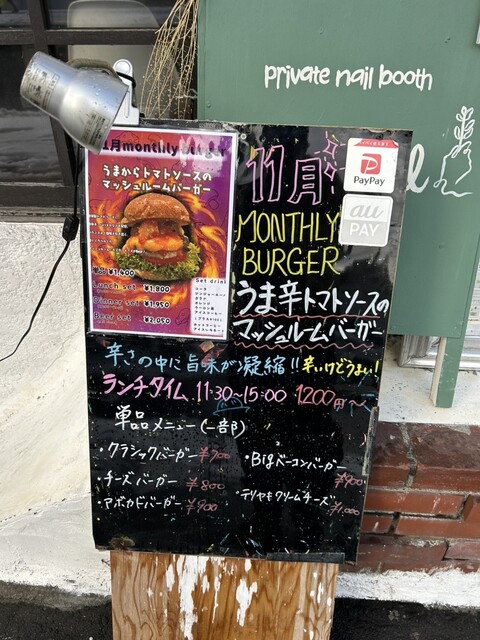 private nail booth
11月monthly burger
うまからトマトソースの
マッシュルームバーガー
単品 ¥1,400
Lunch set ¥1,800
Dinner set ¥1,950
Beer set ¥2,050
Set drink
11月
MONTHLY
BURGER
うま辛トマトソースの
マッシュルームバーガー
PayPay
au
PAY
辛さの中に旨味が凝縮!! 辛いけどうまい!
ランチタイム 11:30~15:00 1200円~
単品メニュー(一部)
・クラシックバーガー ¥700
・チーズバーガー ¥800
・アボカドバーガー ¥900
・Bigベーコンバーガー
¥900
・テリヤキクリームチーズ
¥1,000